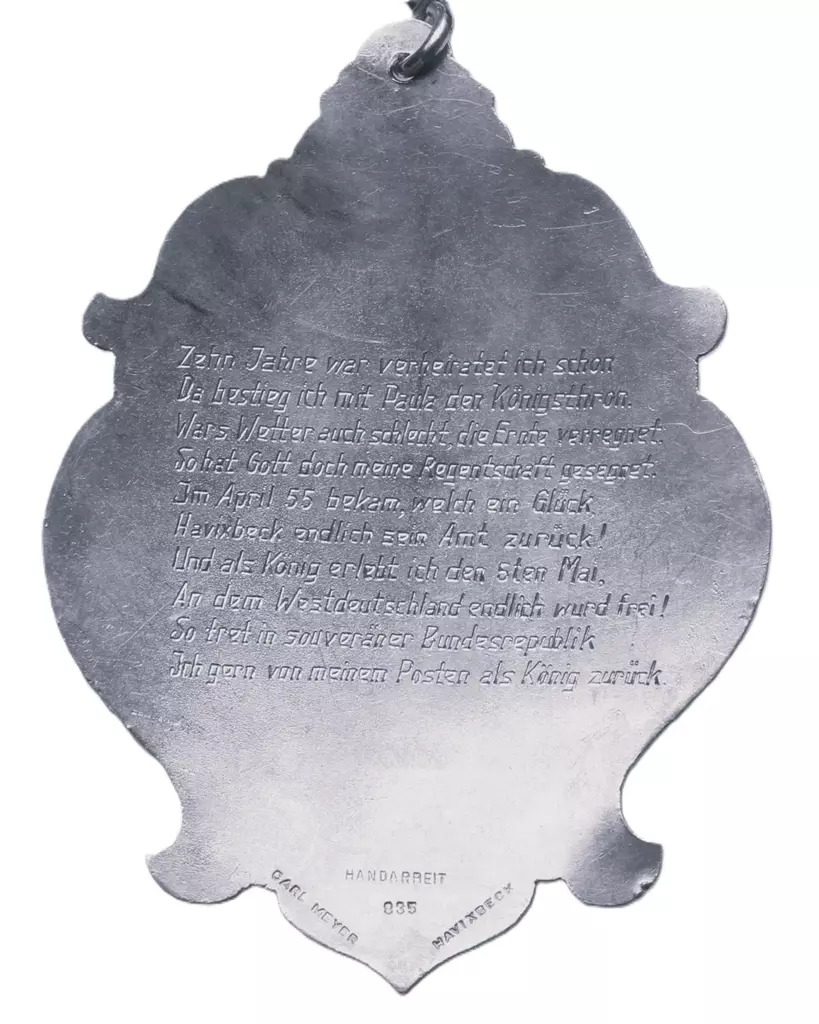 Zehn Jahre war verheiratet ich schon
Da bestieg ich mit Paula den Königsthron.
Wars Wetter auch schlecht, die Ernte verregnet.
So hat Gott doch meine Regentschaft gesegnet.
Im April 55 bekam, welch ein Glück
Havixbeck endlich sein Amt zurück!
Und als König erlebt ich den 5ten Mai,
An dem Westdeutschland endlich wurd frei!
So tret in souveräner Bundesrepublik
Ich gern von meinem Posten als König zurück.
HANDARBEIT
CARL MEYER 835 HAVIXBECK